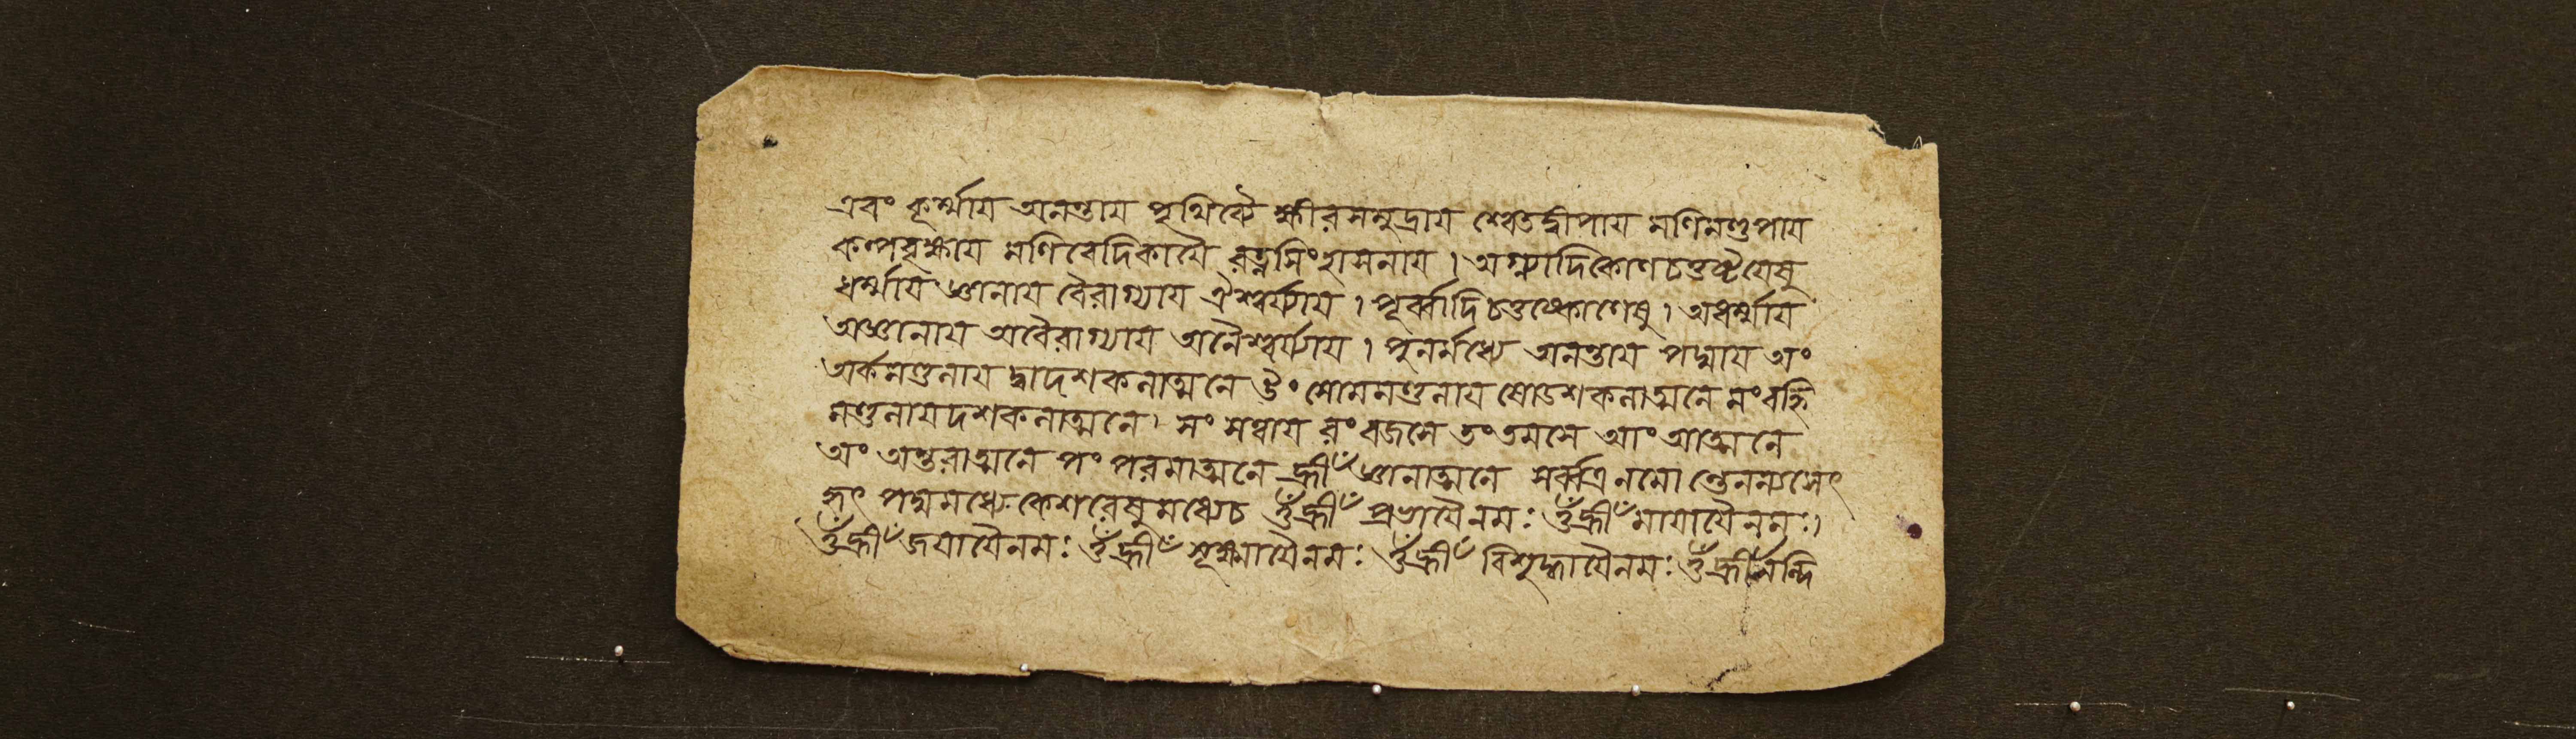 এবং কূর্ম্মায অনন্তায পৃথিব্যৈ ক্ষীরসমুদ্রায শ্বেতদ্বীপায মণিমণ্ডপায
কল্পবৃক্ষায মণিবেদিকাযৈ রত্নসিংহাসনায । অগ্ন্যাদিকোণচতুষ্টযেষু
ধর্ম্মায জ্ঞানায বৈরাগ্যায ঐশ্বর্য্যায । পূর্ব্বাদিচতুষ্কোণেষু । অধর্ম্মায
অজ্ঞানায অবৈরাগ্যায অনৈশ্বর্য্যায । পুনর্মধ্যে অনন্তায পদ্মায অং
অর্কমণ্ডলায দ্বাদশকলাত্মনে ওঁং সোমমণ্ডলায ষোডশকলাত্মনে মং বহ্নি
মণ্ডলায দশকলাত্মনে । সং সত্বায রং রজসে তং তমসে আং আত্মনে
অং অন্তরাত্মনে পং পরমাত্মনে হ্রীঁ জ্ঞানাত্মনে সর্ব্বত্র নমোন্তেন ন্যসেৎ
হৃৎ পদ্মমধ্যে কেশরেষু মধ্যেচ ওঁ হ্রীঁ প্রভাযৈ নমঃ ওঁ হ্রীঁ মাযাযৈ নমঃ ।
ওঁ হ্রীঁ জযাযৈ নমঃ ওঁ হ্রীঁ সূক্ষ্মাযৈ নমঃ ওঁ হ্রীঁ বিশুদ্ধাযৈ নমঃ ওঁ হ্রীঁ নন্দি